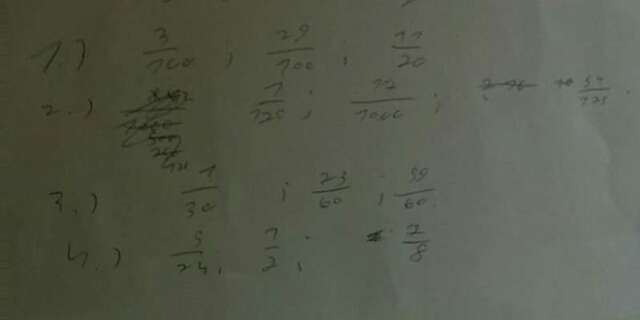 1.) 3/100 ; 29/100 ; 11/20
2.) 1/125 ; 12/1000 ; 54/125
3.) 1/30 ; 23/60 ; 59/60
4.) 5/24, 1/2 ; 7/8